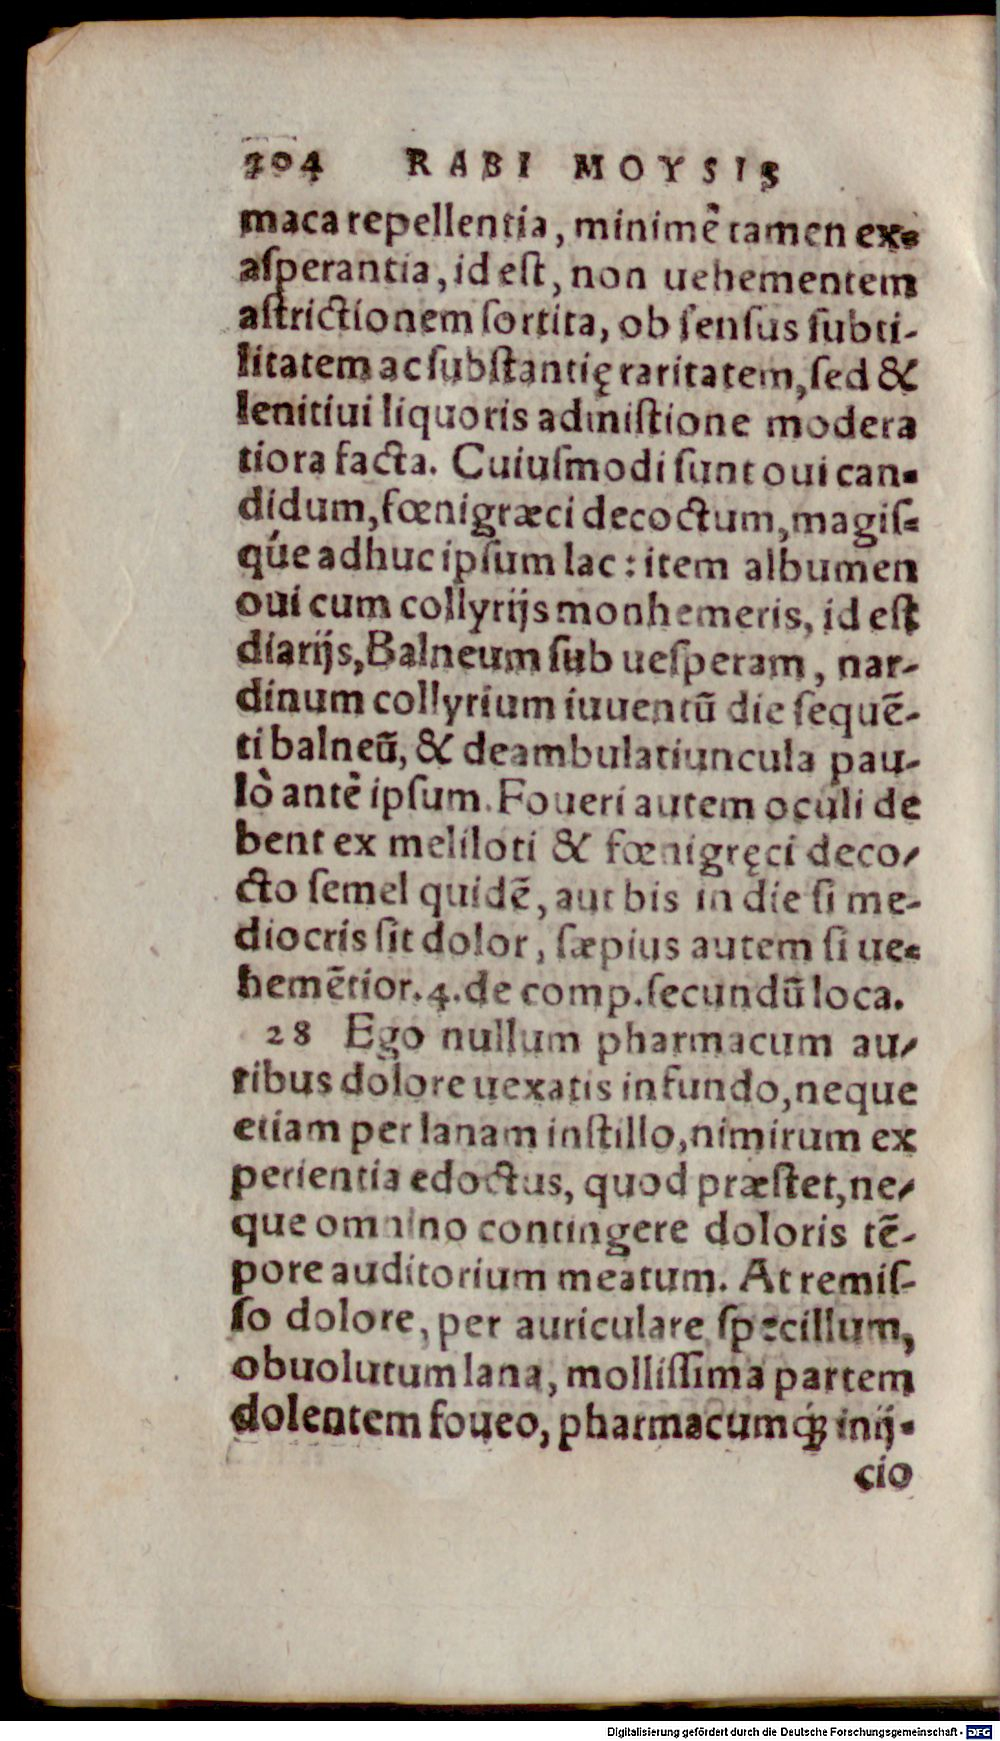 204 RABI MOYSIS
maca repellentia, minimè tamen ex-
aſperantia, id eſt, non uehementem
aſtrictionem ſortita, ob ſenſus ſubti-
litatem ac ſubſtantię raritatem, ſed &
lenitiui liquoris admiſtione modera
tiora facta. Cuiuſmodi ſunt oui can-
didum, fœnigræci decoctum, magiſ-
q́ue adhuc ipſum lac: item albumen
oui cum collyrijs monhemeris, id eſt
diarijs, Balneum ſub ueſperam, nar-
dinum collyrium iuuentũ die ſequẽ-
ti balneũ, & deambulatiuncula pau-
lò antè ipſum. Foueri autem oculi de
bent ex meliloti & fœnigręci deco-
cto ſemel quidẽ, aut bis in die ſi me-
diocris ſit dolor, ſæpius autem ſi ue-
hemẽtior. 4. de comp. ſecundũ loca.
28 Ego nullum pharmacum au-
ribus dolore uexatis infundo, neque
etiam per lanam inſtillo, nimirum ex
perientia edoctus, quod præſtet, ne-
que omnino contingere doloris tẽ-
pore auditorium meatum. At remiſ-
ſo dolore, per auriculare ſpecillum,
obuolutum lana, molliſſima partem
dolentem foueo, pharmacumq́; inij-
cio
Digitalisierung gefördert durch die Deutsche Forschungsgemeinschaft - DFG